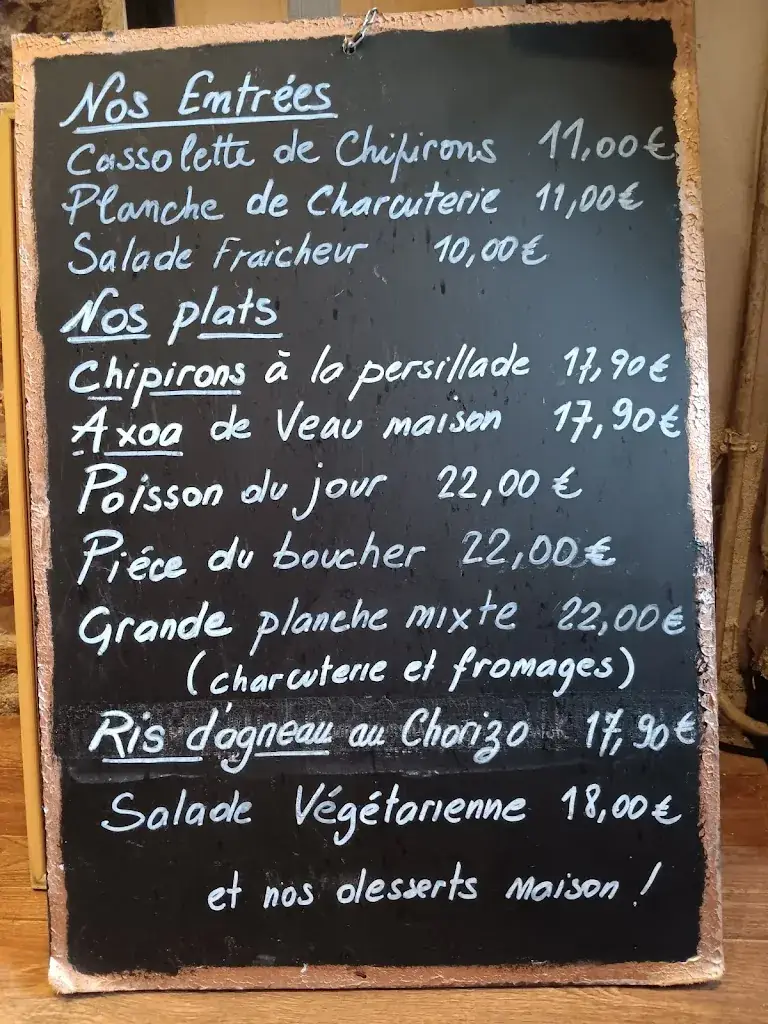 Nos Entrées
Cassolette de Chipirons 11,00€
Planche de Charcuterie 11,00€
Salade Fraicheur 10,00€
Nos plats
Chipirons à la persillade 17,90€
Axoa de Veau maison 17,90€
Poisson du jour 22,00€
Piéce du boucher 22,00€
Grande planche mixte 22,00€
(charcuterie et fromages)
Ris d'agneau au Chorizo 17,90€
Salade Végétarienne 18,00€
et nos desserts maison !